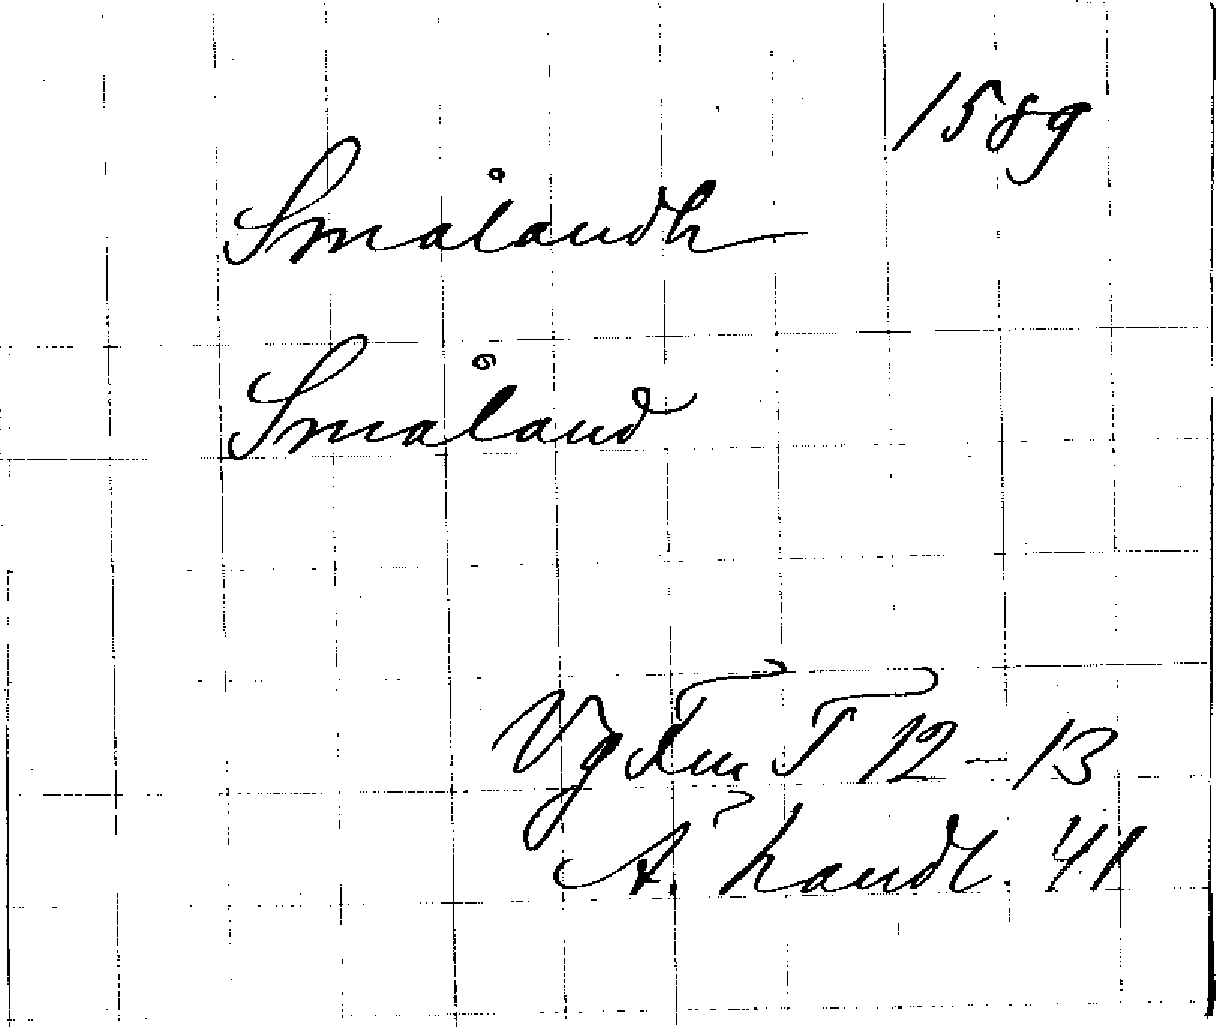 1589
Smålandh
Småland
Vg Fm T 12-13
A. handl. 41